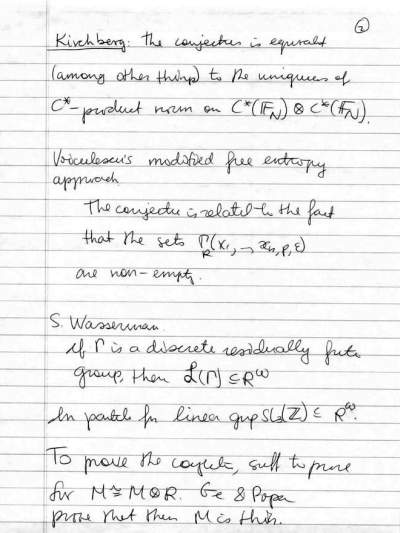 ②
Kirchberg: The conjecture is equivalent
(among other things) to the uniqueness of
C*-product norm on C*(𝔽_N) ⊗ C*(𝔽_N).
Voiculescu's modified free entropy
approach
The conjecture is related to the fact
that the sets Γ_R(x₁, → xₙ, p, ε)
are non-empty.
S. Wasserman
if Γ is a discrete residually finite
group, then ℒ(Γ) ⊆ R^ω
In particular for linear grp SL(ℤ) ⊆ R^ω.
To prove the conjecture, suff to prove
for M ≅ M⊗R. Ge & Popa
prove that then M is thin.